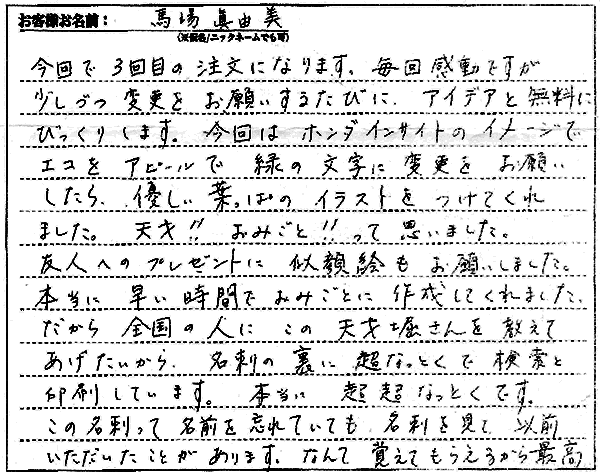 お客様お名前： 馬場 真由美
(※仮名/ニックネームでも可)
今回で 3回目の 注文になります。毎回 感動ですが
少しづつ 変更を お願いするたびに、アイデアと 無料に
びっくりします。今回は ホンダインサイトの イメージで
エコを アピールで 緑の 文字に 変更を お願い
したら、優しい 葉っぱの イラストを つけてくれ
ました。天才!! おみごと!! って 思いました。
友人への プレゼントに 似顔絵も お願いしました。
本当に 早い 時間で おみごとに 作成してくれました。
だから 全国の 人に この 天才堀さんを 教えて
あげたいから、名刺の 裏に 超なっとくで 検索と
印刷しています。 本当に 超超なっとくです。
この名刺って 名前を 忘れていても 名刺を見て 以前
いただいたことが あります。なんて 覚えてもらえるから最高